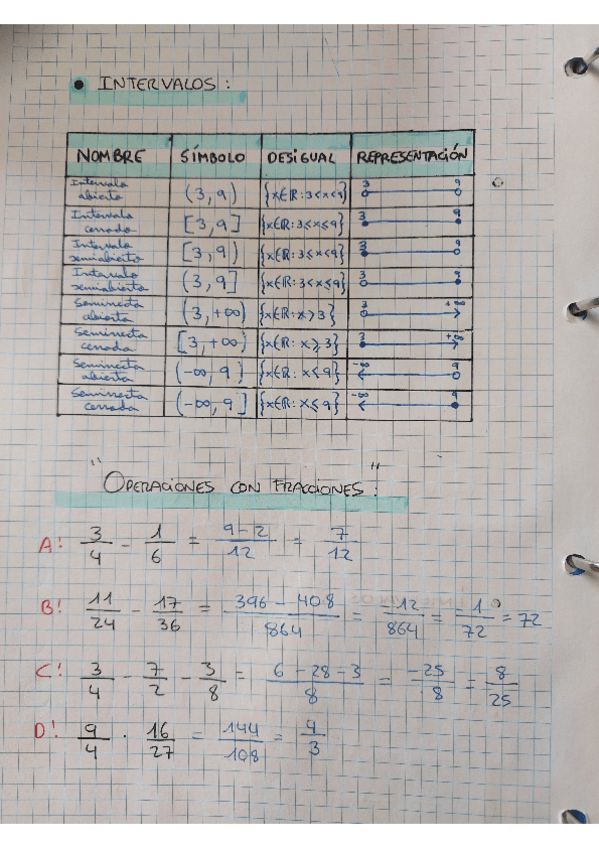 • INTERVALOS:
NOMBRE SÍMBOLO DESIGUAL REPRESENTACIÓN
Intervalo abierto (3, 9) {x∈ℝ: 3<x<9} 3 9
Intervalo cerrado [3, 9] {x∈ℝ: 3≤x≤9} 3 9
Intervalo semiabierto [3, 9) {x∈ℝ: 3≤x<9} 3 9
Intervalo semiabierto (3, 9] {x∈ℝ: 3<x≤9} 3 9
Semirrecta abierta (3, +∞) {x∈ℝ: x>3} 3 +∞
Semirrecta cerrada [3, +∞) {x∈ℝ: x≥3} 3 +∞
Semirrecta abierta (-∞, 9) {x∈ℝ: x<9} -∞ 9
Semirrecta cerrada (-∞, 9] {x∈ℝ: x≤9} -∞ 9
"OPERACIONES CON FRACCIONES":
A! 3/4 - 1/6 = 9-2/12 = 7/12
B! 11/24 - 17/36 = 396 - 408/864 = -12/864 = -1/72 = 72
C! 3/4 - 7/2 - 3/8 = 6 - 28 - 3/8 = -25/8 = 8/25
D! 9/4 · 16/27 = 144/108 = 4/3